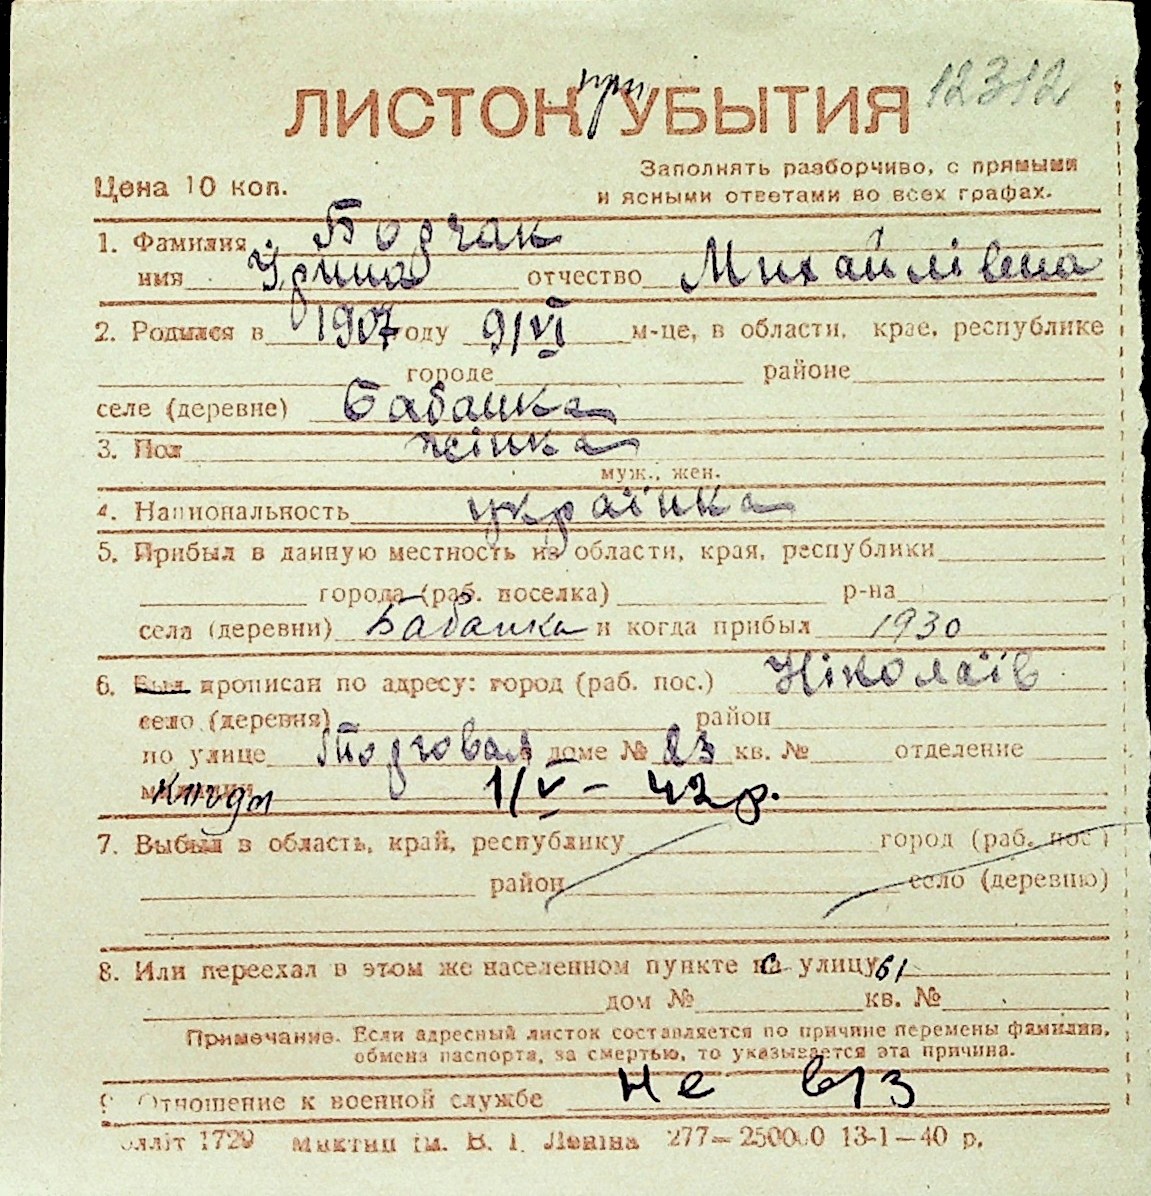 при 12312
ЛИСТОК УБЫТИЯ
Заполнять разборчиво, с прямыми
Цена 10 коп. и ясными ответами во всех графах.
1. Фамилия Бодчак
имя Ірина отчество Михайлівна
2. Родился в 1907 году 9/VI м-це, в области, крае, республике
городе районе
селе (деревне) Бабанка
3. Пол жінка
муж., жен.
4. Национальность українка
5. Прибыл в данную местность из области, края, республики
города (раб. поселка) р-на
села (деревни) Бабанка и когда прибыл 1930
6. Был прописан по адресу: город (раб. пос.) Ніколаїв
село (деревня) район
по улице Торговая доме № 23 кв. № отделение
милиции когда 1/V – 42 р.
7. Выбыл в область, край, республику город (раб. пос.)
район село (деревню)
8. Или переехал в этом же населенном пункте с улицы
дом № кв. №
Примечание. Если адресный листок составляется по причине перемены фамилии,
обмена паспорта, за смертью, то указывается эта причина.
9. Отношение к военной службе не в/з
олліт 1729 Миктип ім. В. І. Леніна 277–250000 13-1–40 р.